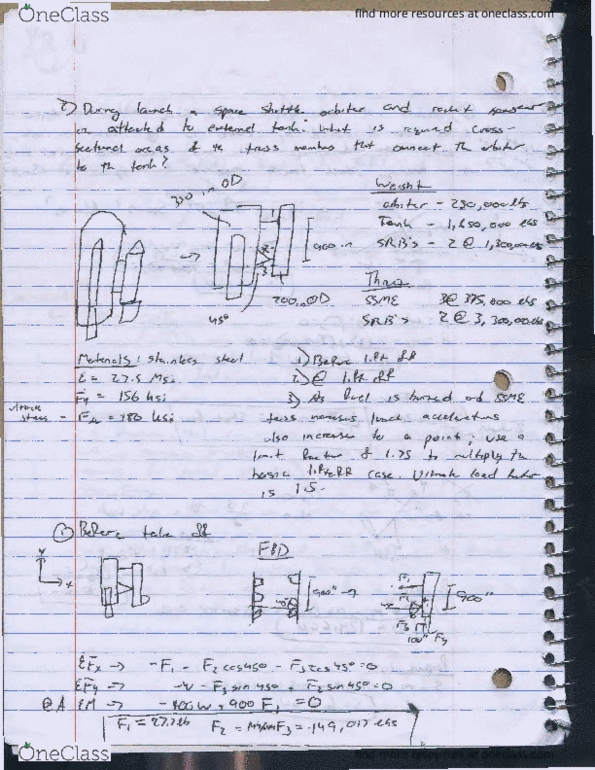 OneClass
find more resources at oneclass.com
2) During launch a space shuttle orbiter and rocket
is attached to external tank. What is required cross-
sectional areas of the truss members that connect the orbiter
to the tank?
330 in OD
Weight
orbiter - 230,000 lbs
Tank - 1,650,000 lbs
SRB's - 2 @ 1,300,000 lbs
900 in
1
2
3
45°
Thrust
SSME 3@ 375,000 lbs
SRB's 2 @ 3,300,000 lbs
Materials: stainless steel
E = 27.5 Msi
Fy = 156 ksi
stress - = 180 ksi
1) Before lift off
2) @ lift off
3) As fuel is burned and SSME
increases launch acceleration
also increases to a point; use a
limit factor of 1.75 to multiply the
basic liftoff case. Ultimate load factor
is 1.5.
① Before take off
FBD
y
x
900"
900"
F1
F3
100"
ΣFx → -F1 - F2 cos45° - F3 cos45° = 0
ΣFy → -W - F3 sin45° + F2 sin45° = 0
@A ΣM → -100W + 900 F1 = 0
F1 = F2 = F3 = 149,017 lbs
OneClass
find more resources at oneclass.com